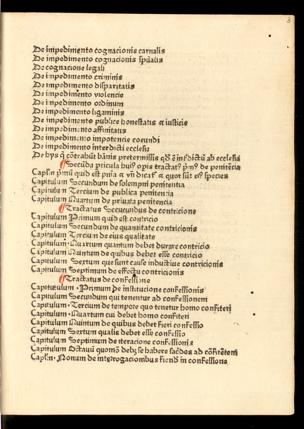 De impedimento cognacionis carnalis
De impedimento cognacionis spūalis
De cognacione legali
De impedimento criminis
De impedimento disparitatis
De impedimento violencie
De impedimento ordinum
De impedimento ligaminis
De impedimento publice honestatis & iusticie
De impedimento affinitatis
De impedimento impotencie coeundi
De impedimento interdicti ecclesie
De hys q̄ cōtrahūt bānis pretermissis
Capitulum Secundum de solempni penitentia
Capitulum Tercium de publica penitentia
Capitulum Quartum de priuata penitentia
Tractatus Secundus de contricione
Capitulum Primum quid est contricio
Capitulum Secundum de quantitate contricionis
Capitulum Tercium de eius qualitate
Capitulum Quartum quantum debet durare contricio
Capitulum Quintum de quibus debet esse contricio
Capitulum Sextum que sunt cause inductiue contricionis
Capitulum Septimum de effectu contricionis
Tractatus de confessione
Capitulum Primum De institucione confessionis
Capitulum Secundum qui tenentur ad confessionem
Capitulum Tercium de tempore quo tenetur homo confiteri
Capitulum Quartum cui debet homo confiteri
Capitulum Quintum de quibus debet fieri confessio
Capitulum Sextum qualis debet esse confessio
Capitulum Septimum de iteracione confessionis
Capitulum Octauū quomō debȝ se habere sacdos ad cōfitētem
Capłm Nonum de interrogacionibus fiendis in confessione